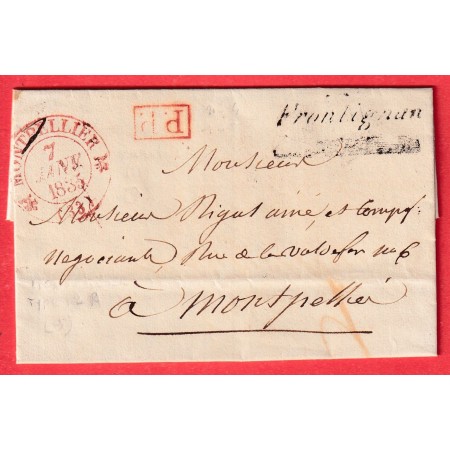 MONTPELLIER
7
JANV.
1835
(33)
P.P.
Frontignan
Monsieur
Monsieur Rigal ainé, et Compe.
negociants, Rue de la no 6
à Montpellier